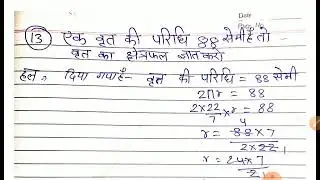 Date
Page No
13 एक वृत की परिधि 88 सेमी है तो
वृत का क्षेत्रफल ज्ञात करो
हल, दिया गया है- वृत की परिधि = 88 सेमी
2πr = 88
2×22/7 × r = 88
r = 4 88×7/2×22 1
r = 24×7/2 1